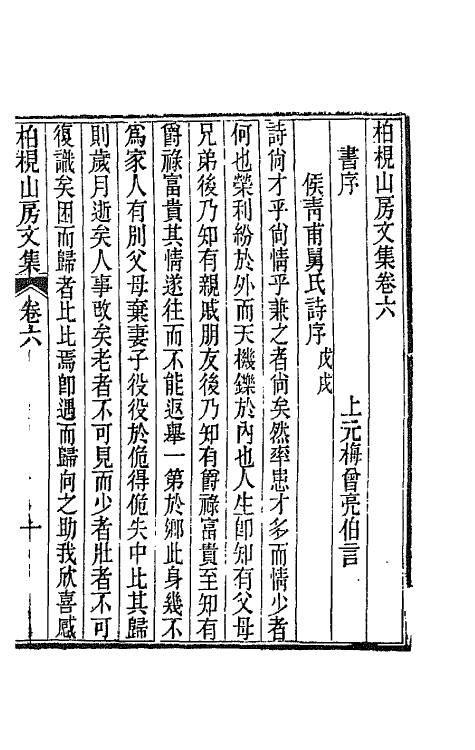 柏梘山房文集卷六
書序　上元梅曾亮伯言
侯靑甫舅氏詩序戊戌
詩尙才乎尙情乎兼之者尙矣然率患才多而情少者
何也榮利紛於外而天機鑠於內也人生卽知有父母
兄弟後乃知有親戚朋友後乃知有爵祿富貴至知有
爵祿富貴其情遂往而不能返舉一第於鄉此身幾不
爲家人有別父母棄妻子役役於佹得佹失中比其歸
則歲月逝矣人事攺矣老者不可見而少者壯者不可
復識矣困而歸者比比焉卽遇而歸向之助我欣喜感
柏梘山房文集　卷六